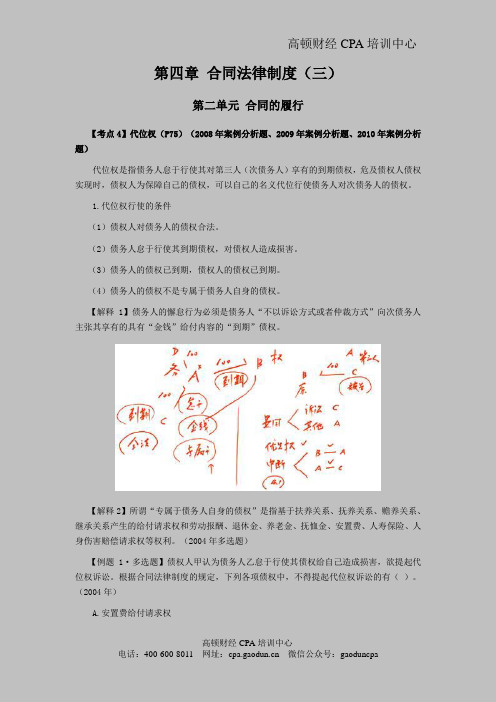 高顿财经 CPA 培训中心
第四章 合同法律制度（三）
第二单元 合同的履行
【考点 4】代位权（P75）（2008 年案例分析题、2009 年案例分析题、2010 年案例分析
题）
代位权是指债务人怠于行使其对第三人（次债务人）享有的到期债权，危及债权人债权
实现时，债权人为保障自己的债权，可以自己的名义代位行使债务人对次债务人的债权。
1.代位权行使的条件
（1）债权人对债务人的债权合法。
（2）债务人怠于行使其到期债权，对债权人造成损害。
（3）债务人的债权已到期，债权人的债权已到期。
（4）债务人的债权不是专属于债务人自身的债权。
【解释 1】债务人的懈怠行为必须是债务人“不以诉讼方式或者仲裁方式”向次债务人
主张其享有的具有“金钱”给付内容的“到期”债权。
D 100
务 A 100 B 权
到期
100
到期 C 怠于
金钱
合法
专属于
A
B 100 C
诉讼 C
其他 A
中断 B — A
A — C
【解释 2】所谓“专属于债务人自身的债权”是指基于扶养关系、抚养关系、赡养关系、
继承关系产生的给付请求权和劳动报酬、退休金、养老金、抚恤金、安置费、人寿保险、人
身伤害赔偿请求权等权利。（2004 年多选题）
【例题 1·多选题】债权人甲认为债务人乙怠于行使其债权给自己造成损害，欲提起代
位权诉讼。根据合同法律制度的规定，下列各项债权中，不得提起代位权诉讼的有（ ）。
（2004 年）
A.安置费给付请求权
高顿财经 CPA 培训中心
电话：400-600-8011 网址：cpa.gaodun.cn 微信公众号：gaoduncpa